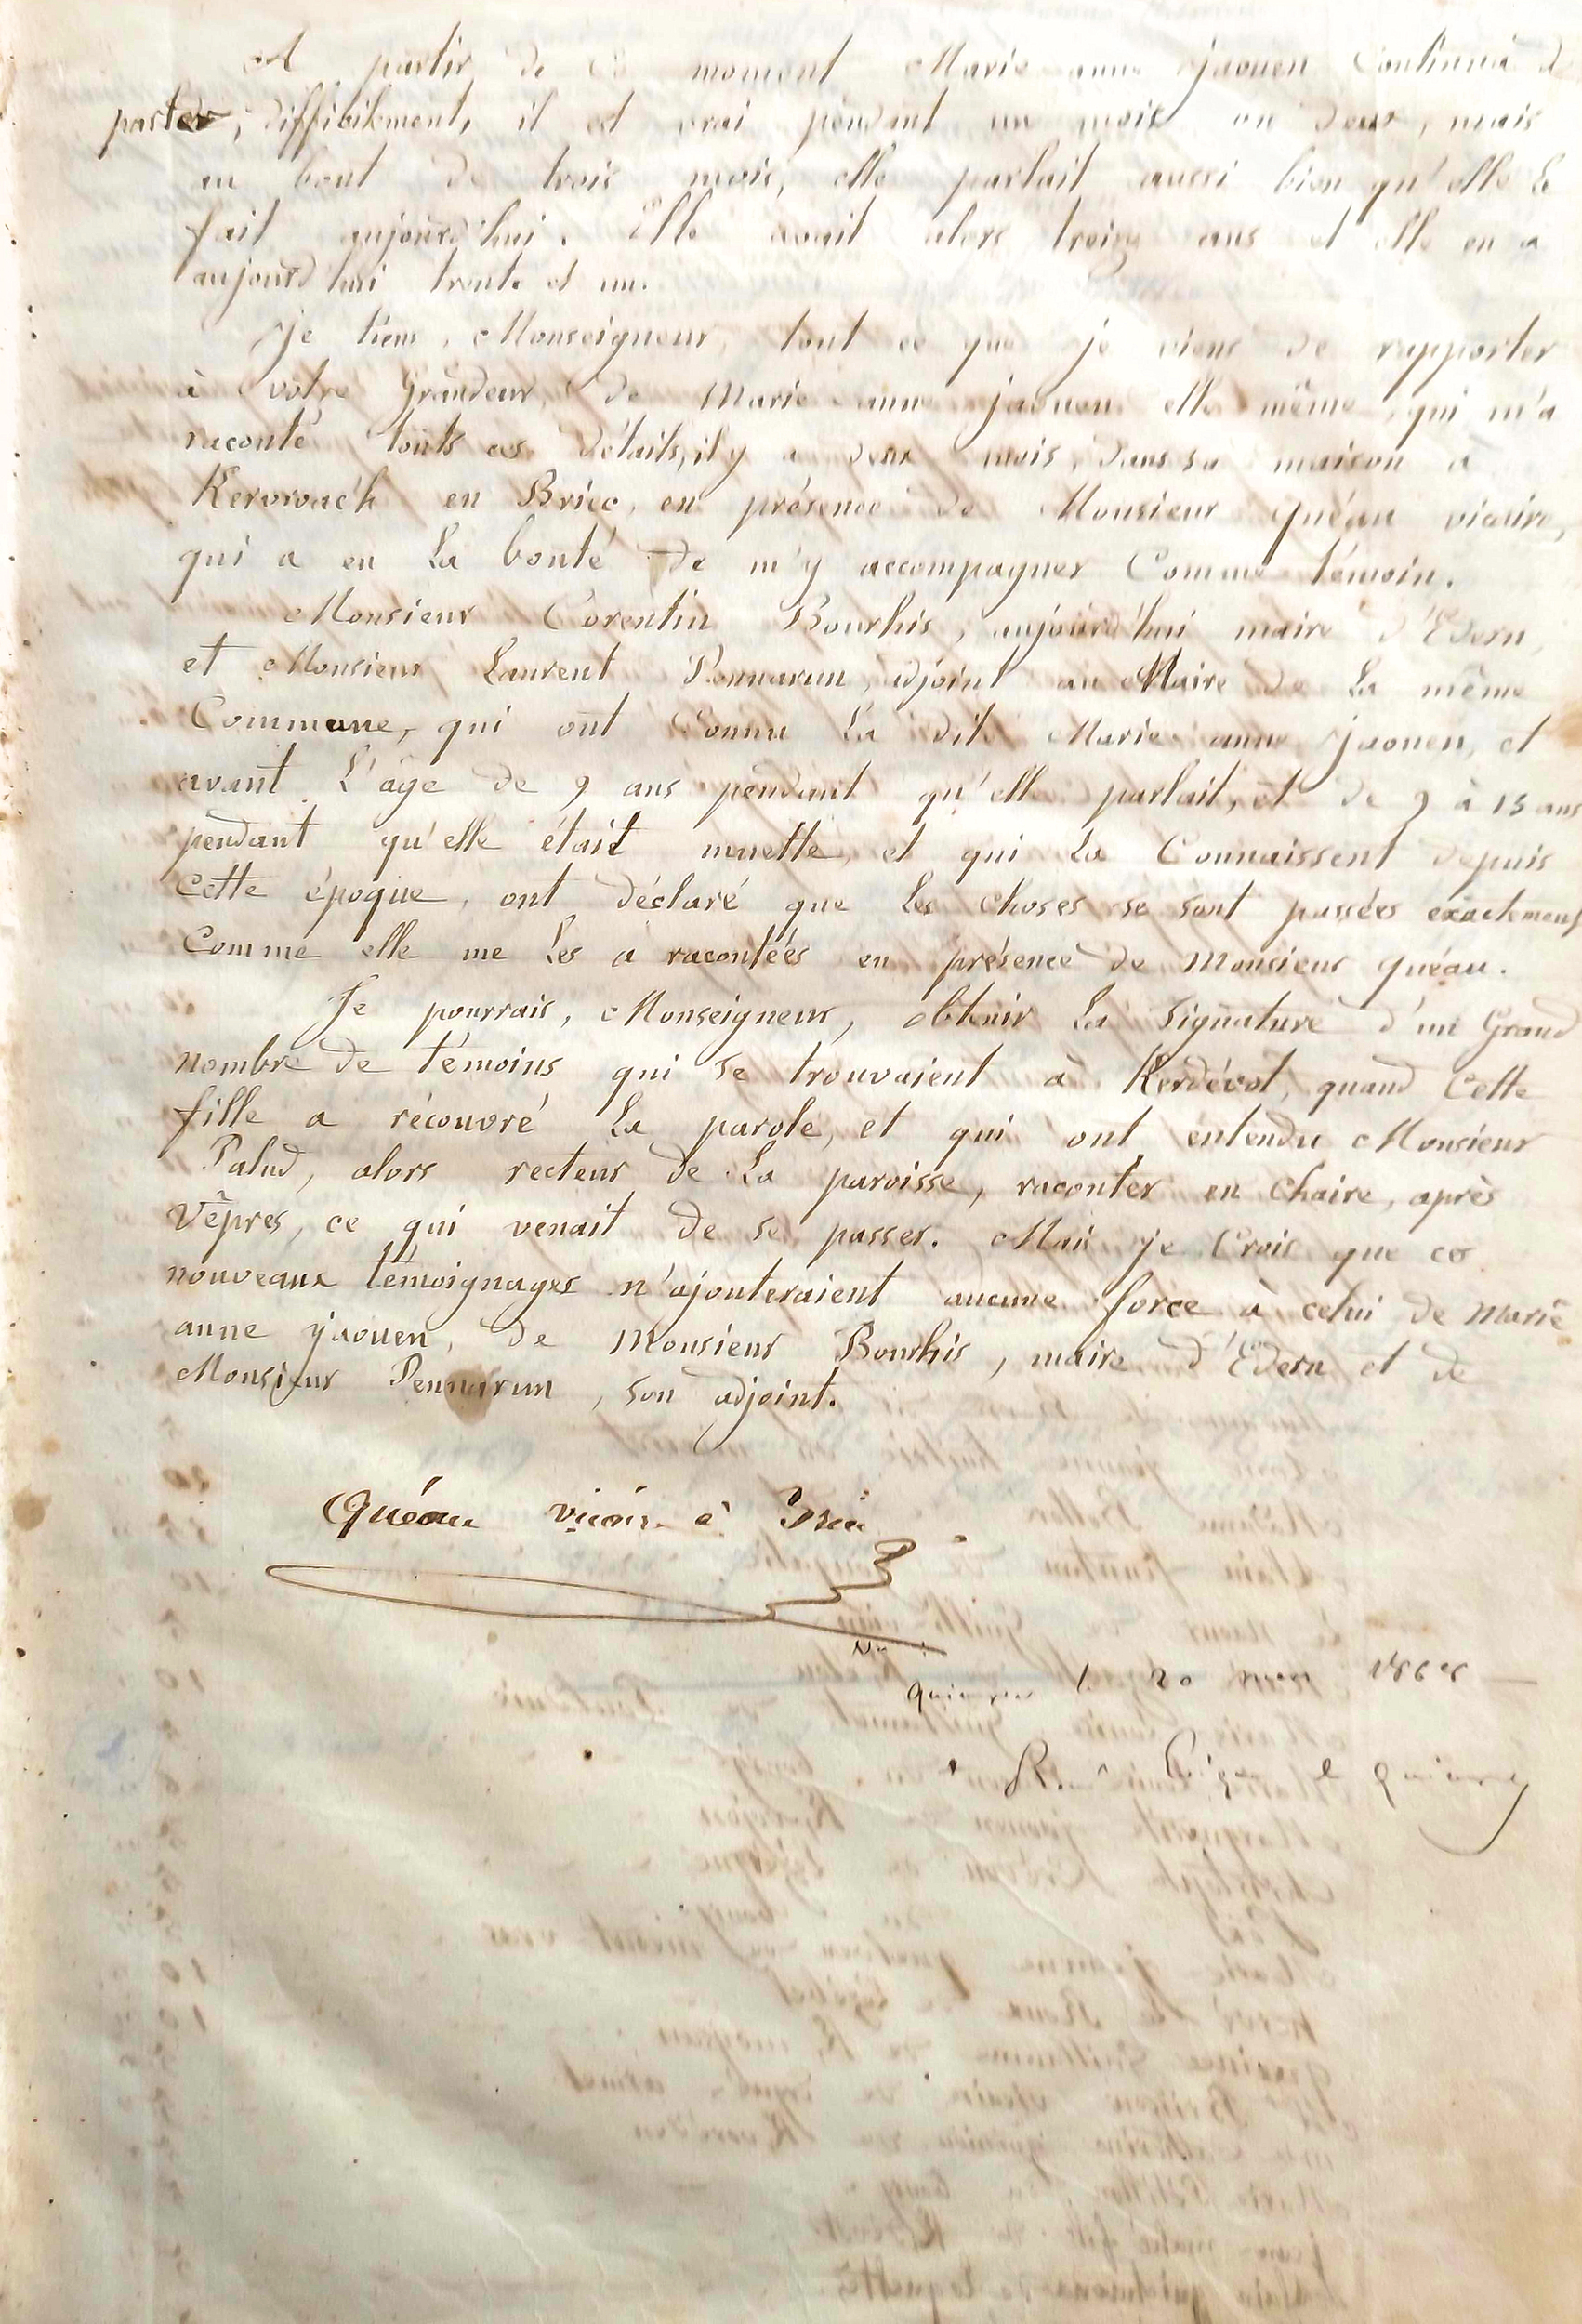 A partir de ce moment Marie anne jaouen Continua de
parler, difficilement, il est vrai pendant un mois ou deux, mais
au bout de trois mois, elle parlait aussi bien qu'elle le
fait aujourd'hui. Elle avait alors treize ans et elle en a
aujourd'hui trente et un.
Je tiens, Monseigneur, tout ce que je viens de rapporter
à votre Grandeur, de Marie anne jaouen elle même, qui m'a
raconté touts ces détails, il y a deux mois, dans sa maison à
Kervroac'h en Briec, en présence de Monsieur Quéau vicaire,
qui a eu La bonté de m'y accompagner Comme témoin.
Monsieur Corentin Bourhis, aujourd'hui maire d'Edern,
et Monsieur Laurent Pennarun, adjoint au Maire de La même
Commune, qui ont Connu La dite Marie anne Jaouen, et
avant L'âge de 9 ans pendant qu'elle parlait, et de 9 à 13 ans
pendant qu'elle était muette, et qui La Connaissent depuis
Cette époque, ont déclaré que Les choses se sont passées exactement
Comme elle me Les a racontées en présence de Monsieur Quéau.
Je pourrais, Monseigneur, obtenir La Signature d'un Grand
nombre de témoins qui se trouvaient à Kerdévot, quand Cette
fille a récouvré La parole, et qui ont entendu Monsieur
Palud, alors recteur de La paroisse, raconter en Chaire, après
Vêpres, ce qui venait de se passer. Mais je Crois que ces
nouveaux témoignages n'ajouteraient aucune force à celui de Marie
anne jaouen, de Monsieur Bourhis, maire d'Edern et de
Monsieur Pennarun, son adjoint.
Quéau vicaire à Briec
Quimper le 20 1868
R. de Quimper